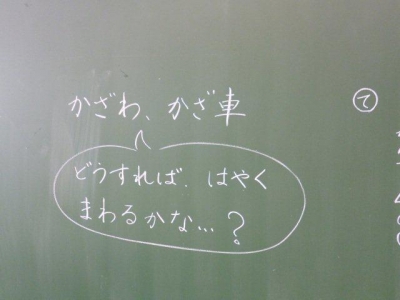 かざわ、かざ車
どうすれば、はやく
まわるかな…?
て